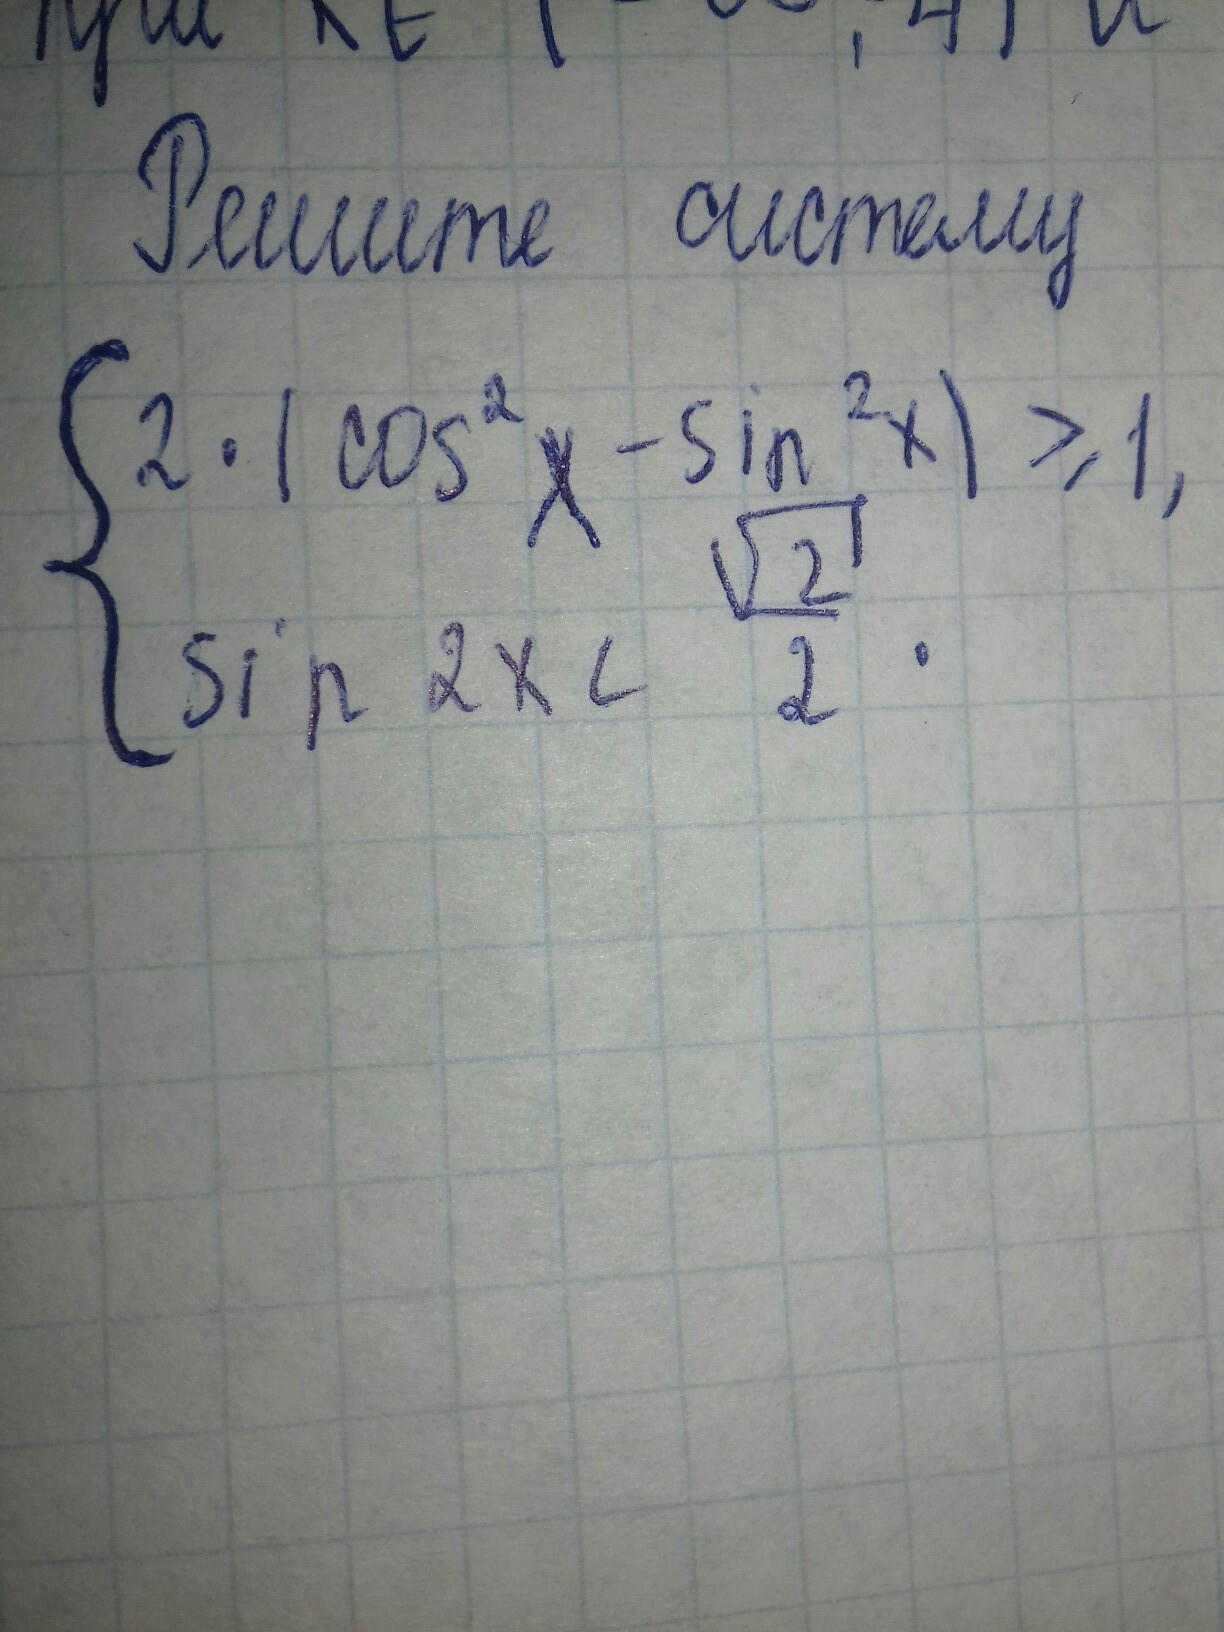 при x ∈ (-∞; 4) и
Решите систему
{ 2·|cos²x - sin²x| ≥ 1,
sin 2x < √2/2.